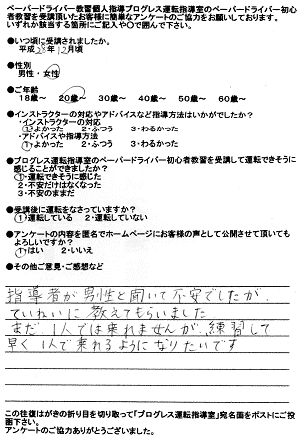 ペーパードライバー教習個人指導プログレス運転指導室のペーパードライバー初心
者教習を受講頂いたお客様に簡単なアンケートのご協力をお願いしております。
いずれか該当する箇所にご記入や○で囲んで下さい。
●いつ頃に受講されましたか。
平成28年12月頃
●性別
男性・女性
●ご年齢
18歳～ 20歳～ 30歳～ 40歳～ 50歳～ 60歳～
●インストラクターの対応やアドバイスなど指導方法はいかがでしたか？
・インストラクターの対応
1・よかった 2・ふつう 3・わるかった
・アドバイスや指導方法
1・よかった 2・ふつう 3・わるかった
●プログレス運転指導室のペーパードライバー初心者教習を受講して運転できそうに
感じることができましたか？
1・運転できそうに感じた
2・不安だけはなくなった
3・不安のままだ
●受講後に運転をなさっていますか？
1・運転している 2・運転していない
●アンケートの内容を匿名でホームページにお客様の声として公開させて頂いても
よろしいですか？
1・はい 2・いいえ
●その他ご意見・ご感想など
指導者が男性と聞いて不安でしたが、
ていねいに教えてもらいました
まだ、1人では乗れませんが、練習して
早く1人で乗れるようになりたいです
この往復はがきの折り目を切り取って「プログレス運転指導室」宛名面をポストにご投
函下さい。
アンケートのご協力ありがとうございました。